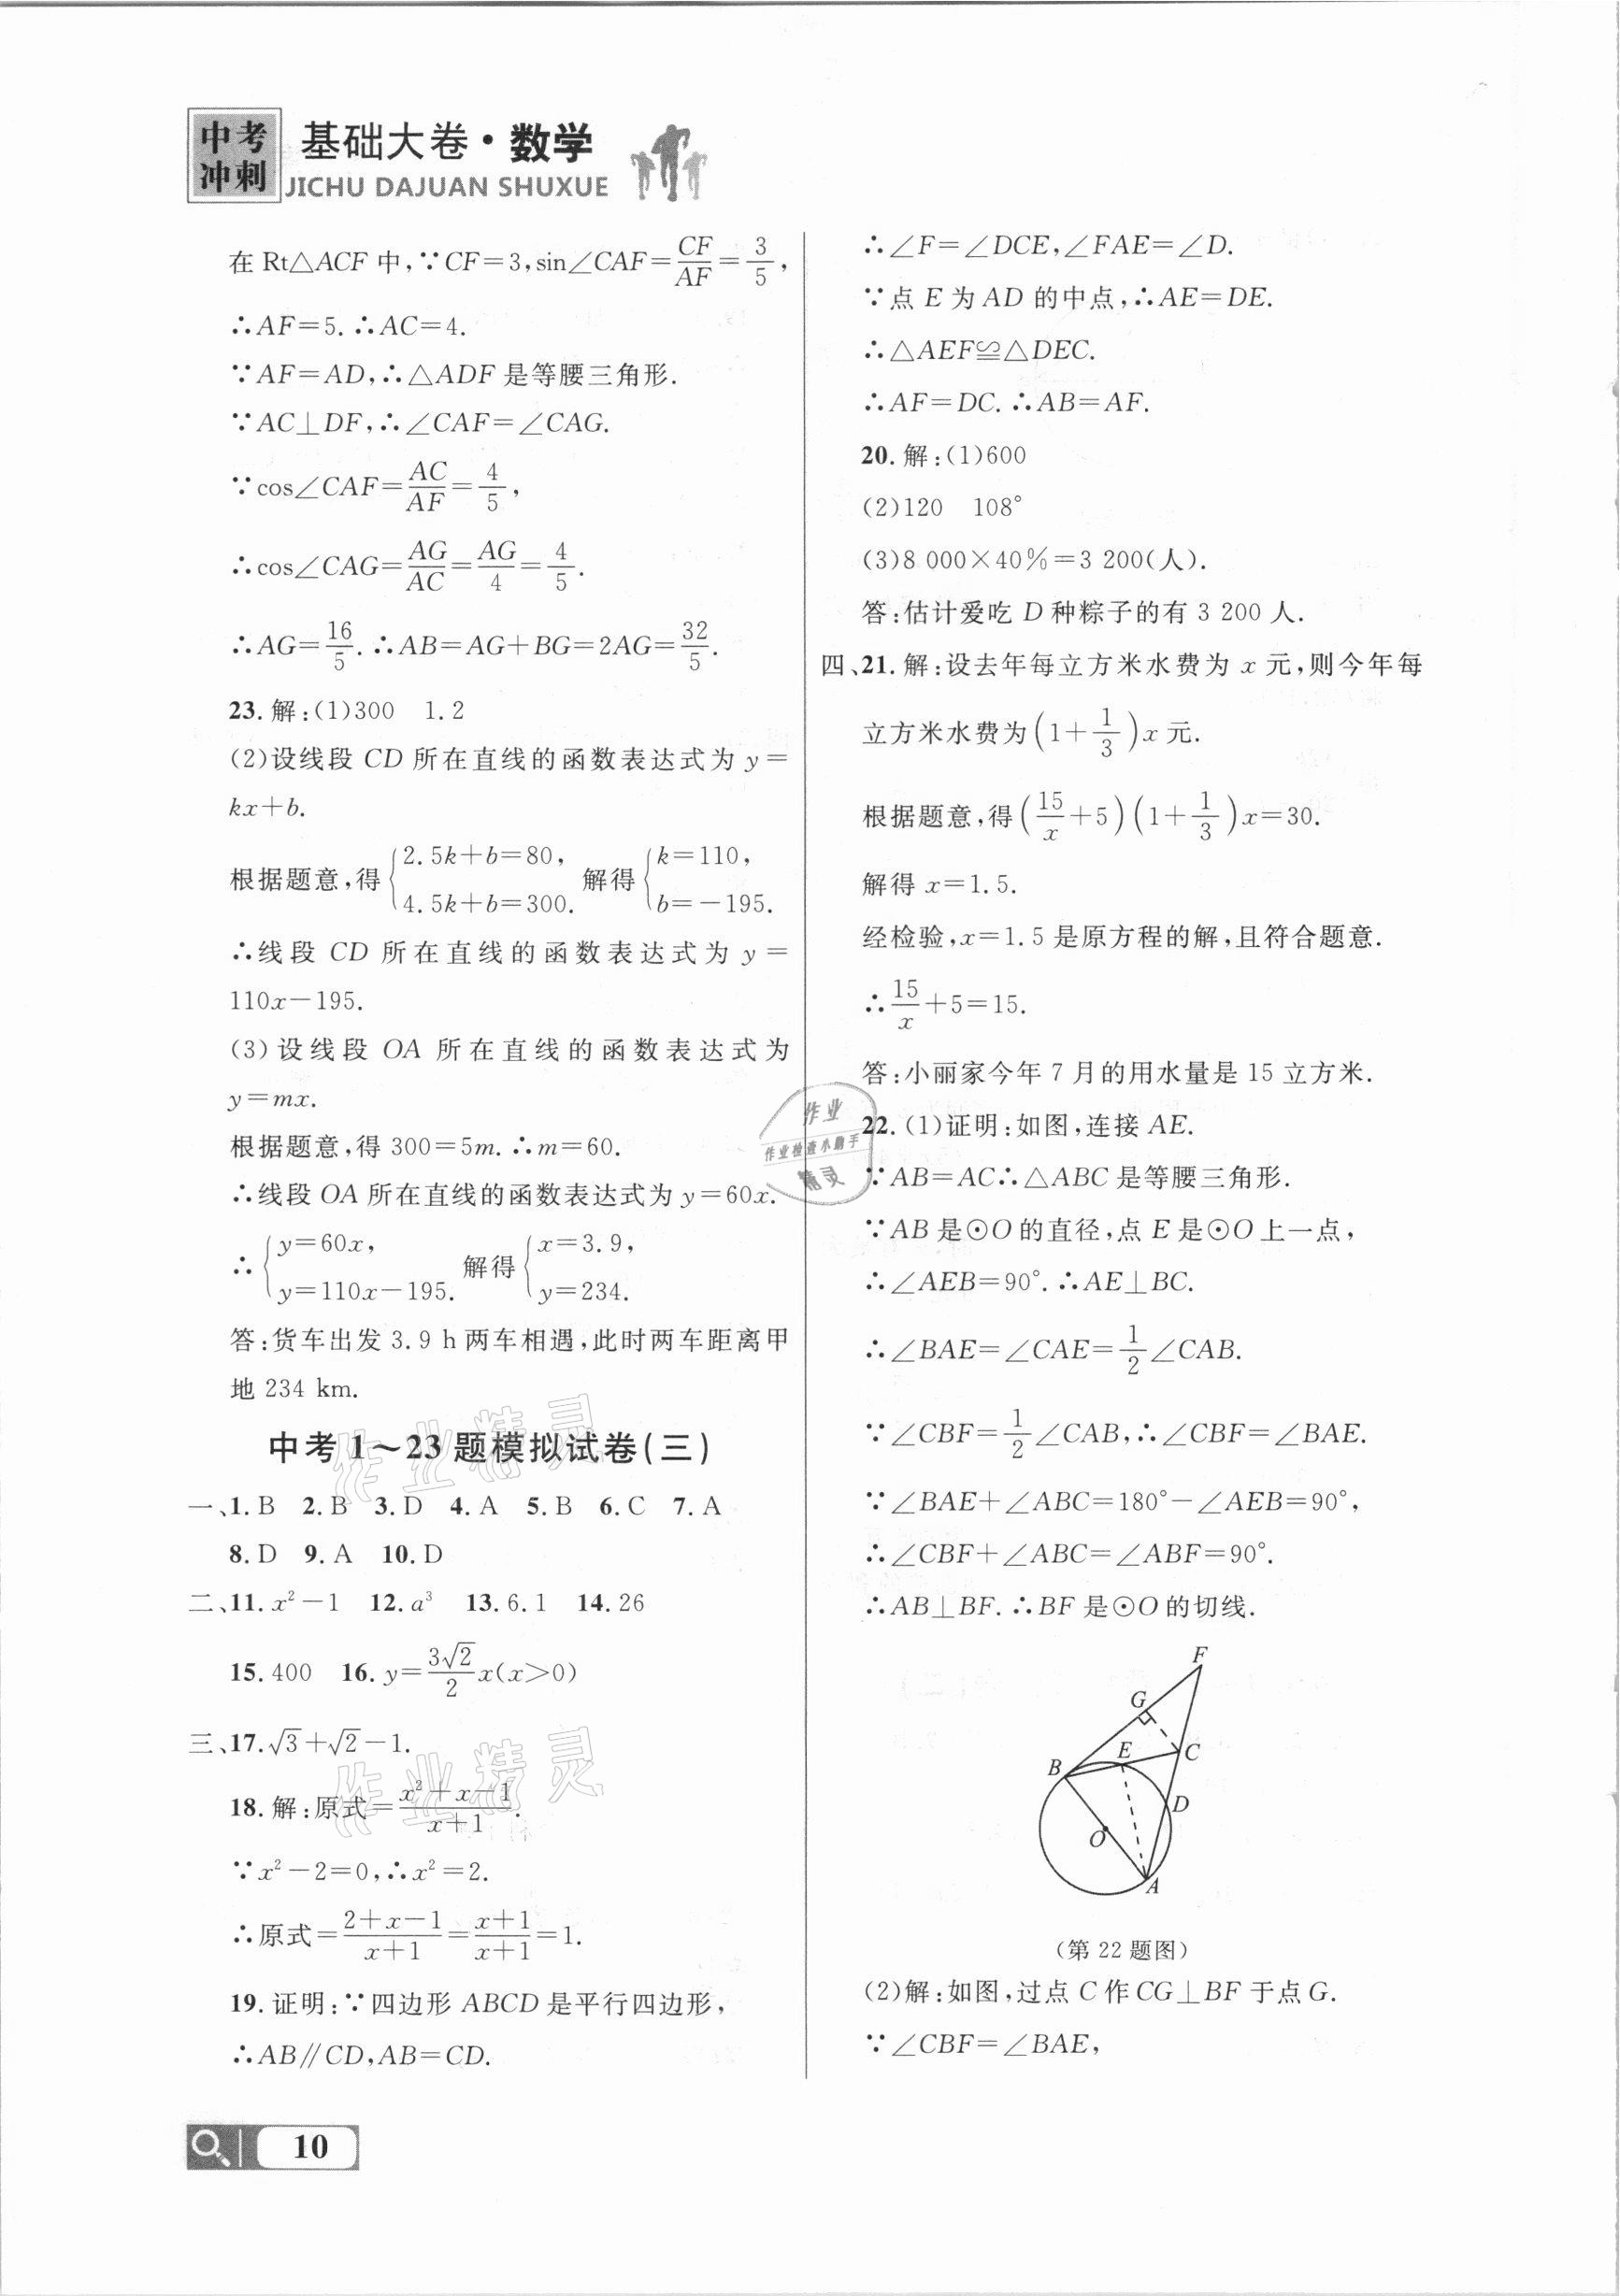 中考冲刺
基础大卷·数学
JICHU DAJUAN SHUXUE
在 Rt△ACF 中,∵CF=3,sin∠CAF=CF/AF=3/5,
∴AF=5.∴AC=4.
∵AF=AD,∴△ADF 是等腰三角形.
∵AC⊥DF,∴∠CAF=∠CAG.
∵cos∠CAF=AC/AF=4/5,
∴cos∠CAG=AG/AC=AG/4=4/5.
∴AG=16/5.∴AB=AG+BG=2AG=32/5.
23.解:(1)300 1.2
(2)设线段 CD 所在直线的函数表达式为 y=
kx+b.
根据题意,得{2.5k+b=80, 4.5k+b=300. 解得{k=110, b=-195.
∴线段 CD 所在直线的函数表达式为 y=
110x-195.
(3)设线段 OA 所在直线的函数表达式为
y=mx.
根据题意,得 300=5m.∴m=60.
∴线段 OA 所在直线的函数表达式为 y=60x.
∴{y=60x, y=110x-195. 解得{x=3.9, y=234.
答:货车出发 3.9 h 两车相遇,此时两车距离甲
地 234 km.
中考 1～23 题模拟试卷(三)
一、1.B 2.B 3.D 4.A 5.B 6.C 7.A
8.D 9.A 10.D
二、11.x²-1 12.a³ 13.6.1 14.26
15.400 16.y=3√2/2 x(x>0)
三、17.√3+√2-1.
18.解:原式=(x²+x-1)/(x+1).
∵x²-2=0,∴x²=2.
∴原式=(2+x-1)/(x+1)=(x+1)/(x+1)=1.
19.证明:∵四边形 ABCD 是平行四边形,
∴AB∥CD,AB=CD.
10
∴∠F=∠DCE,∠FAE=∠D.
∵点 E 为 AD 的中点,∴AE=DE.
∴△AEF≌△DEC.
∴AF=DC.∴AB=AF.
20.解:(1)600
(2)120 108°
(3)8 000×40%=3 200(人).
答:估计爱吃 D 种粽子的有 3 200 人.
四、21.解:设去年每立方米水费为 x 元,则今年每
立方米水费为(1+1/3)x 元.
根据题意,得(15/x+5)(1+1/3)x=30.
解得 x=1.5.
经检验,x=1.5 是原方程的解,且符合题意.
∴15/x+5=15.
答:小丽家今年 7 月的用水量是 15 立方米.
22.(1)证明:如图,连接 AE.
∵AB=AC∴△ABC 是等腰三角形.
∵AB 是⊙O 的直径,点 E 是⊙O 上一点,
∴∠AEB=90°.∴AE⊥BC.
∴∠BAE=∠CAE=1/2∠CAB.
∵∠CBF=1/2∠CAB,∴∠CBF=∠BAE.
∵∠BAE+∠ABC=180°-∠AEB=90°,
∴∠CBF+∠ABC=∠ABF=90°.
∴AB⊥BF.∴BF 是⊙O 的切线.
F
G
E
C
B
D
O
A
(第 22 题图)
(2)解:如图,过点 C 作 CG⊥BF 于点 G.
∵∠CBF=∠BAE,
作业
作业检查小助手
精灵
作业精灵
作业精灵